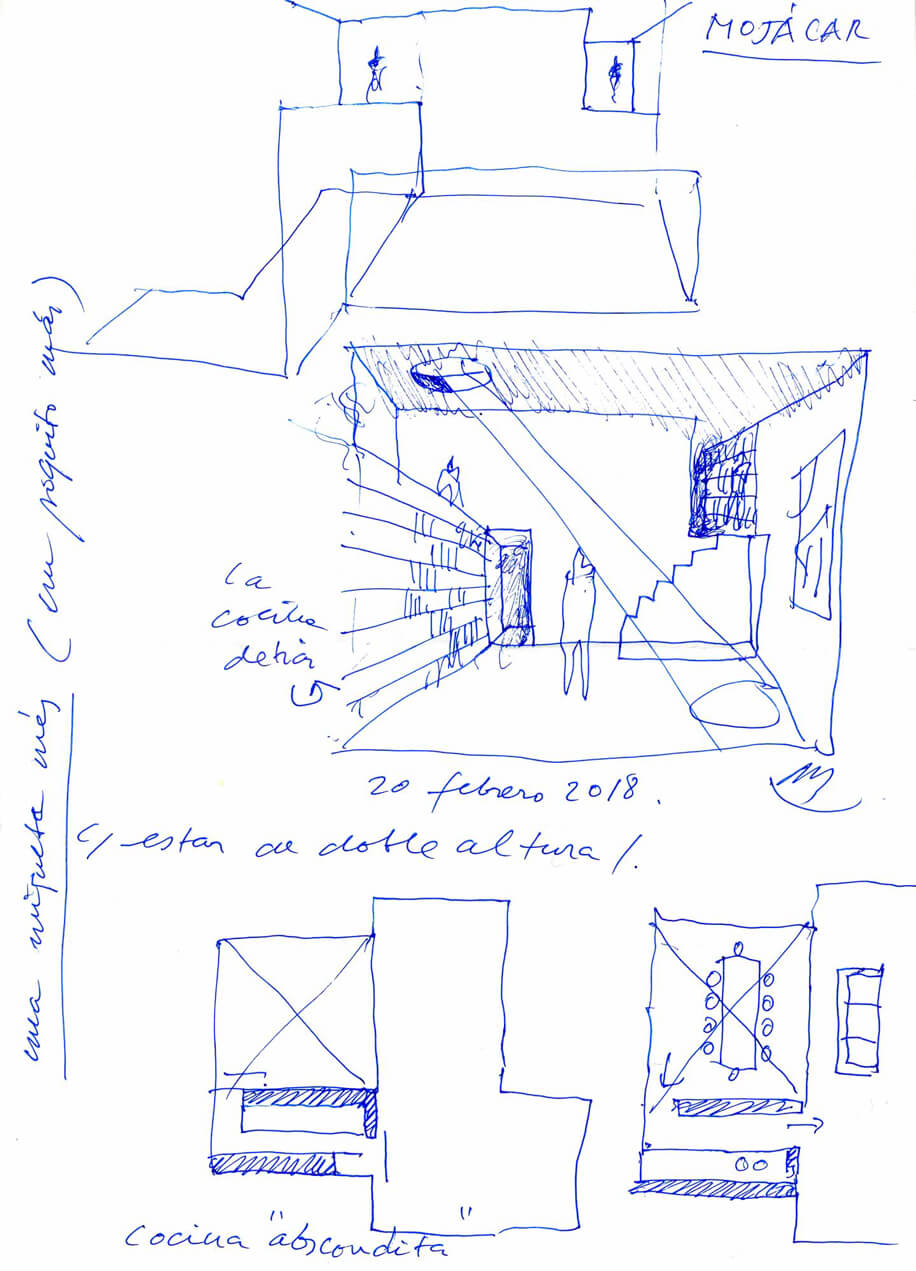 MOJÁCAR
la
cocina
detrás
20 febrero 2018.
c/ estar de doble altura/.
una miqueta més (un poquito más)
cocina "abscondita"